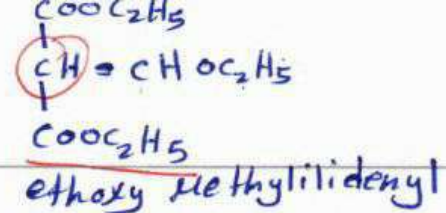 COOC2H5
CH = CHOC2H5
COOC2H5
ethoxy Methylilidenyl